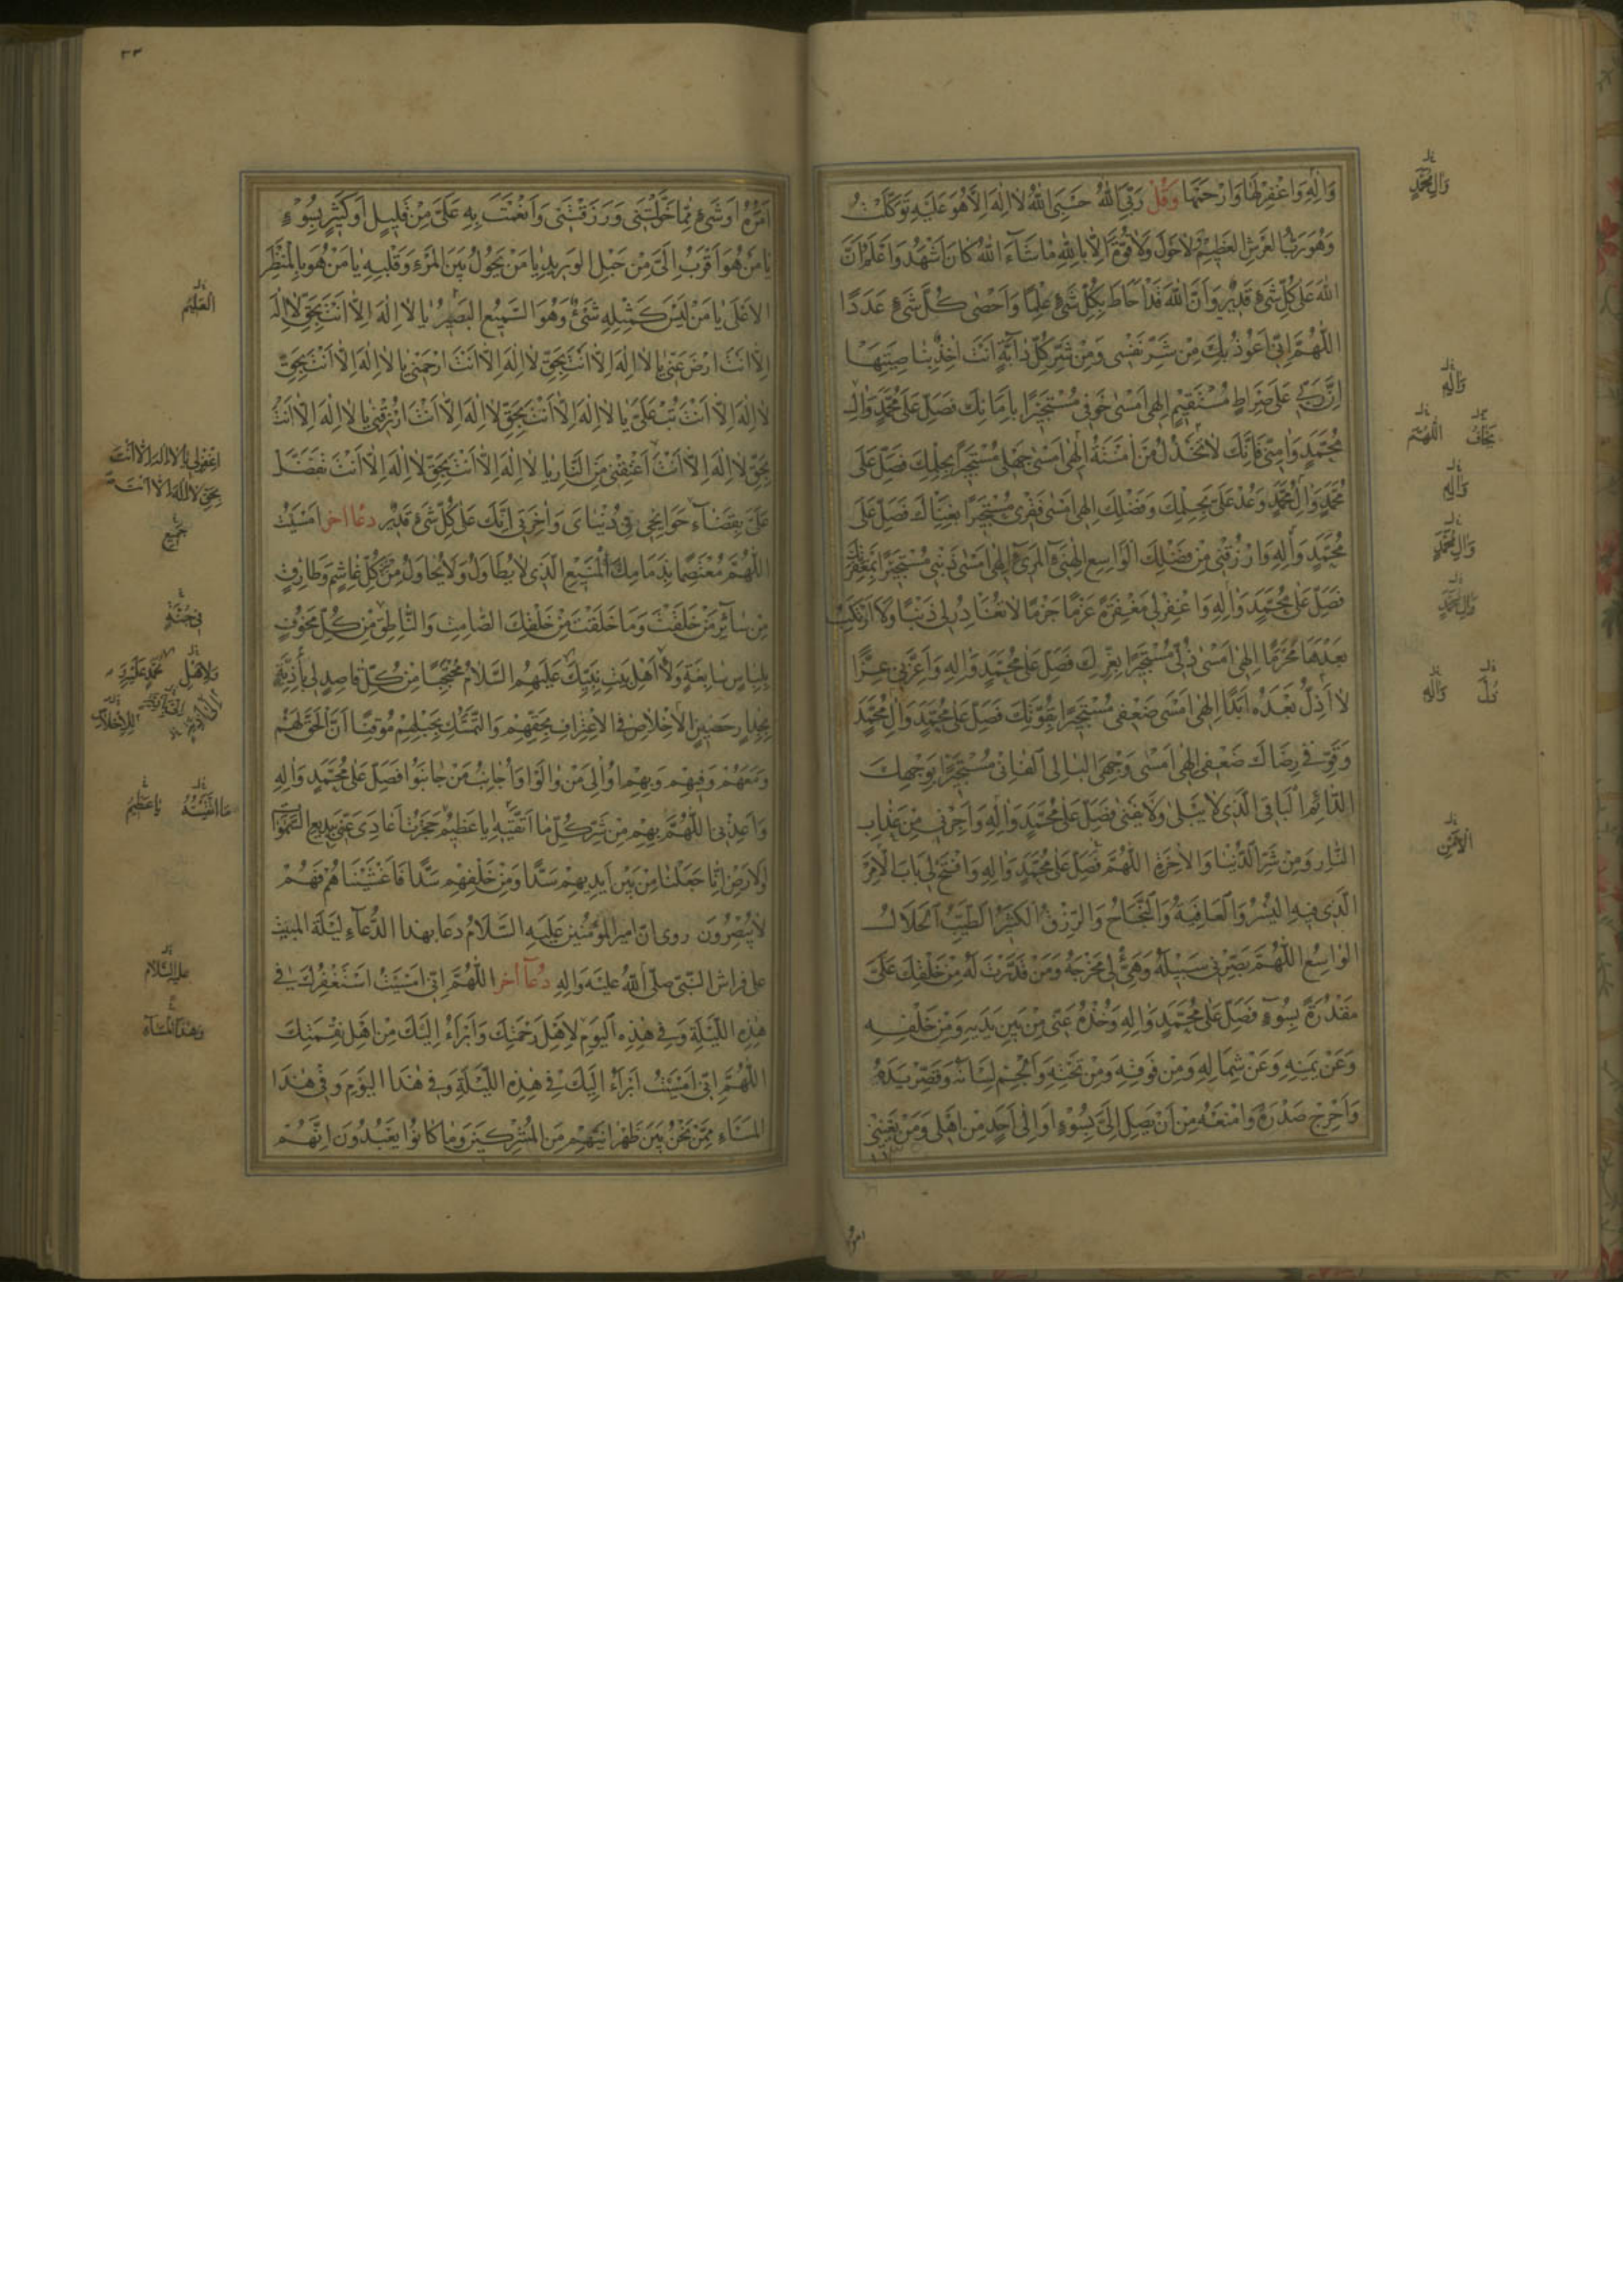 وَالِهِ وَاغْفِرْ لَهَا وَارْحَمْهَا وَقُلْ رَبِّيَ اللهُ حَسْبِيَ اللهُ لا اِلٰهَ اِلَّا هُوَ عَلَيْهِ تَوَكَّلْتُ
وَهُوَ رَبُّ العَرْشِ العَظِيمِ وَلا حَوْلَ وَلا قُوَّةَ اِلَّا بِاللهِ مَا شَآءَ اللهُ كَانَ اَشْهَدُ وَاَعْلَمُ اَنَّ
اللهَ عَلىٰ كُلِّ شَىْءٍ قَدِيرٌ وَاَنَّ اللهَ قَدْ اَحَاطَ بِكُلِّ شَىْءٍ عِلْمًا وَاَحْصىٰ كُلَّ شَىْءٍ عَدَدًا
اَللّٰهُمَّ اِنِّى اَعُوذُ بِكَ مِنْ شَرِّ نَفْسِى وَمِنْ شَرِّ كُلِّ دَآبَّةٍ اَنْتَ اٰخِذٌ بِنَاصِيَتِهَا
اِنَّ رَبِّى عَلىٰ صِرَاطٍ مُسْتَقِيمٍ اِلٰهِى اَمْسىٰ خَوْفِى مُسْتَجِيرًا بِاَمَانِكَ فَصَلِّ عَلىٰ مُحَمَّدٍ وَالِ
مُحَمَّدٍ وَاٰمِنِّى فَاِنَّكَ لا تَخْذُلُ مَنْ اٰمَنْتَهُ اِلٰهِى اَمْسىٰ جَهْلِى مُسْتَجِيرًا بِحِلْمِكَ فَصَلِّ عَلىٰ
مُحَمَّدٍ وَالِ مُحَمَّدٍ وَعُدْ عَلَىَّ بِحِلْمِكَ وَفَضْلِكَ اِلٰهِى اَمْسىٰ فَقْرِى مُسْتَجِيرًا بِغِنَاكَ فَصَلِّ عَلىٰ
مُحَمَّدٍ وَالِهِ وَارْزُقْنِى مِنْ فَضْلِكَ الوَاسِعِ الهَنِىءِ المَرِىءِ اِلٰهِى اَمْسىٰ ذَنْبِى مُسْتَجِيرًا بِمَغْفِرَتِكَ
فَصَلِّ عَلىٰ مُحَمَّدٍ وَالِهِ وَاغْفِرْ لِى مَغْفِرَةً عَزْمًا جَزْمًا لا تُغَادِرُ لِى ذَنْبًا وَلا اَرْتَكِبُ
بَعْدَهَا مُحَرَّمًا اِلٰهِى اَمْسىٰ ذُلِّى مُسْتَجِيرًا بِعِزِّكَ فَصَلِّ عَلىٰ مُحَمَّدٍ وَالِهِ وَاَعِزَّنِى عِزًّا
لا اَذِلُّ بَعْدَهُ اَبَدًا اِلٰهِى اَمْسىٰ ضَعْفِى مُسْتَجِيرًا بِقُوَّتِكَ فَصَلِّ عَلىٰ مُحَمَّدٍ وَالِ مُحَمَّدٍ
وَقَوِّ فِى رِضَاكَ ضَعْفِى اِلٰهِى اَمْسىٰ وَجْهِىَ البَالِى الفَانِى مُسْتَجِيرًا بِوَجْهِكَ
الدَّائِمِ البَاقِى الَّذِى لا يَبْلىٰ وَلا يَفْنىٰ فَصَلِّ عَلىٰ مُحَمَّدٍ وَالِهِ وَاَجِرْنِى مِنْ عَذَابِ
النَّارِ وَمِنْ شَرِّ الدُّنْيَا وَالاٰخِرَةِ اَللّٰهُمَّ فَصَلِّ عَلىٰ مُحَمَّدٍ وَالِهِ وَافْتَحْ لِى بَابَ الاَمْرِ
الَّذِى فِيهِ اليُسْرُ وَالعَافِيَةُ وَالنَّجَاحُ وَالرِّزْقُ الكَثِيرُ الطَّيِّبُ الحَلالُ
الوَاسِعُ اَللّٰهُمَّ بَصِّرْنِى سَبِيلَهُ وَهَيِّئْ لِى مَخْرَجَهُ وَمَنْ قَدَّرْتَ لَهُ مِنْ خَلْقِكَ عَلَىَّ
مَقْدُرَةً بِسُوْءٍ فَصَلِّ عَلىٰ مُحَمَّدٍ وَالِهِ وَخُذْهُ عَنِّى مِنْ بَيْنِ يَدَيْهِ وَمِنْ خَلْفِهِ
وَعَنْ يَمِينِهِ وَعَنْ شِمَالِهِ وَمِنْ فَوْقِهِ وَمِنْ تَحْتِهِ وَاَلْجِمْ لِسَانَهُ وَقَصِّرْ يَدَهُ
وَاَحْرِجْ صَدْرَهُ وَامْنَعْهُ مِنْ اَنْ يَصِلَ اِلَىَّ بِسُوْءٍ اَوْ اِلىٰ اَحَدٍ مِنْ اَهْلِى وَمَنْ يَعْنِينِى
وَالِ مُحَمَّدٍ
وَالِهِ
يَخَافُ اَللّٰهُمَّ
وَالِهِ
وَالِ مُحَمَّدٍ
وَالِ مُحَمَّدٍ
وَالِهِ
٣٣
اَمْرُهُ اَوْ شَىْءٍ مِمَّا خَوَّلْتَنِى وَرَزَقْتَنِى وَاَنْعَمْتَ بِهِ عَلَىَّ مِنْ قَلِيلٍ اَوْ كَثِيرٍ بِسُوْءٍ
يَا مَنْ هُوَ اَقْرَبُ اِلَىَّ مِنْ حَبْلِ الوَرِيدِ يَا مَنْ يَحُولُ بَيْنَ المَرْءِ وَقَلْبِهِ يَا مَنْ هُوَ بِالمَنْظَرِ
الاَعْلىٰ يَا مَنْ لَيْسَ كَمِثْلِهِ شَىْءٌ وَهُوَ السَّمِيعُ البَصِيرُ يَا لا اِلٰهَ اِلَّا اَنْتَ بِحَقِّ لا اِلٰهَ
اِلَّا اَنْتَ ارْضَ عَنِّى يَا لا اِلٰهَ اِلَّا اَنْتَ بِحَقِّ لا اِلٰهَ اِلَّا اَنْتَ ارْحَمْنِى يَا لا اِلٰهَ اِلَّا اَنْتَ بِحَقِّ
لا اِلٰهَ اِلَّا اَنْتَ تُبْ عَلَىَّ يَا لا اِلٰهَ اِلَّا اَنْتَ بِحَقِّ لا اِلٰهَ اِلَّا اَنْتَ ارْزُقْنِى يَا لا اِلٰهَ اِلَّا اَنْتَ
بِحَقِّ لا اِلٰهَ اِلَّا اَنْتَ اَعْتِقْنِى مِنَ النَّارِ يَا لا اِلٰهَ اِلَّا اَنْتَ بِحَقِّ لا اِلٰهَ اِلَّا اَنْتَ تَفَضَّلْ
عَلَىَّ بِقَضَآءِ حَوَائِجِى فِى دُنْيَاىَ وَاٰخِرَتِى اِنَّكَ عَلىٰ كُلِّ شَىْءٍ قَدِيرٌ دعَا اٰخر اَمْسَيْتُ
اَللّٰهُمَّ مُعْتَصِمًا بِذِمَامِكَ المَنِيعِ الَّذِى لا يُطَاوَلُ وَلا يُحَاوَلُ مِنْ كُلِّ غَاشِمٍ وَطَارِقٍ
مِنْ سَآئِرِ مَنْ خَلَقْتَ وَمَا خَلَقْتَ مِنْ خَلْقِكَ الصَّامِتِ وَالنَّاطِقِ مِنْ كُلِّ مَخُوفٍ
بِلِبَاسٍ سَابِغَةٍ وَلاءِ اَهْلِ بَيْتِ نَبِيِّكَ عَلَيْهِمُ السَّلامُ مُحْتَجِبًا مِنْ كُلِّ قَاصِدٍ لِى بِاَذِيَّةٍ
بِجِدَارٍ حَصِينِ الاِخْلاصِ فِى الاِعْتِرَافِ بِحَقِّهِمْ وَالتَّمَسُّكِ بِحَبْلِهِمْ مُوقِنًا اَنَّ الحَقَّ لَهُمْ
وَمَعَهُمْ وَفِيهِمْ وَبِهِمْ اُوَالِى مَنْ وَالَوْا وَاُجَانِبُ مَنْ جَانَبُوا فَصَلِّ عَلىٰ مُحَمَّدٍ وَالِهِ
وَاَعِذْنِى اَللّٰهُمَّ بِهِمْ مِنْ شَرِّ كُلِّ مَا اَتَّقِيهِ يَا عَظِيمُ حَجَزْتُ اَعَادِىَ عَنِّى بِبَدِيعِ السَّمٰوَاتِ
وَالاَرْضِ اِنَّا جَعَلْنَا مِنْ بَيْنِ اَيْدِيهِمْ سَدًّا وَمِنْ خَلْفِهِمْ سَدًّا فَاَغْشَيْنَاهُمْ فَهُمْ
لا يُبْصِرُونَ روى انّ امير المؤمنين عليه السّلام دعا بهذا الدّعآء ليلة المبيت
على فراش النّبى صلّى الله عليه واله دُعَآ اٰخر اَللّٰهُمَّ اِنِّى اَمْسَيْتُ اَسْتَغْفِرُكَ فِى
هٰذِهِ اللَّيْلَةِ وَفِى هٰذِهِ اليَوْمِ لِاَهْلِ رَحْمَتِكَ وَاَبْرَءُ اِلَيْكَ مِنْ اَهْلِ نِقْمَتِكَ
اَللّٰهُمَّ اِنِّى اَمْسَيْتُ اَبْرَءُ اِلَيْكَ فِى هٰذِهِ اللَّيْلَةِ وَفِى هٰذَا اليَوْمِ وَفِى هٰذَا
المَسَاءِ مِمَّنْ نَحْنُ بَيْنَ ظَهْرَانَيْهِمْ مِنَ المُشْرِكِينَ وَمَا كَانُوا يَعْبُدُونَ اِنَّهُمْ
العَلِيمُ
اِغْفِرْ لِى يَا لا اِلٰهَ اِلَّا اَنْتَ
بِحَقِّ لا اِلٰهَ اِلَّا اَنْتَ
جَمِيعِ
فِى جُنَّةٍ
مَا اَتَّقِيهِ يَا عَظِيمُ
عليه السّلام
وَهٰذَا المَسَآءِ